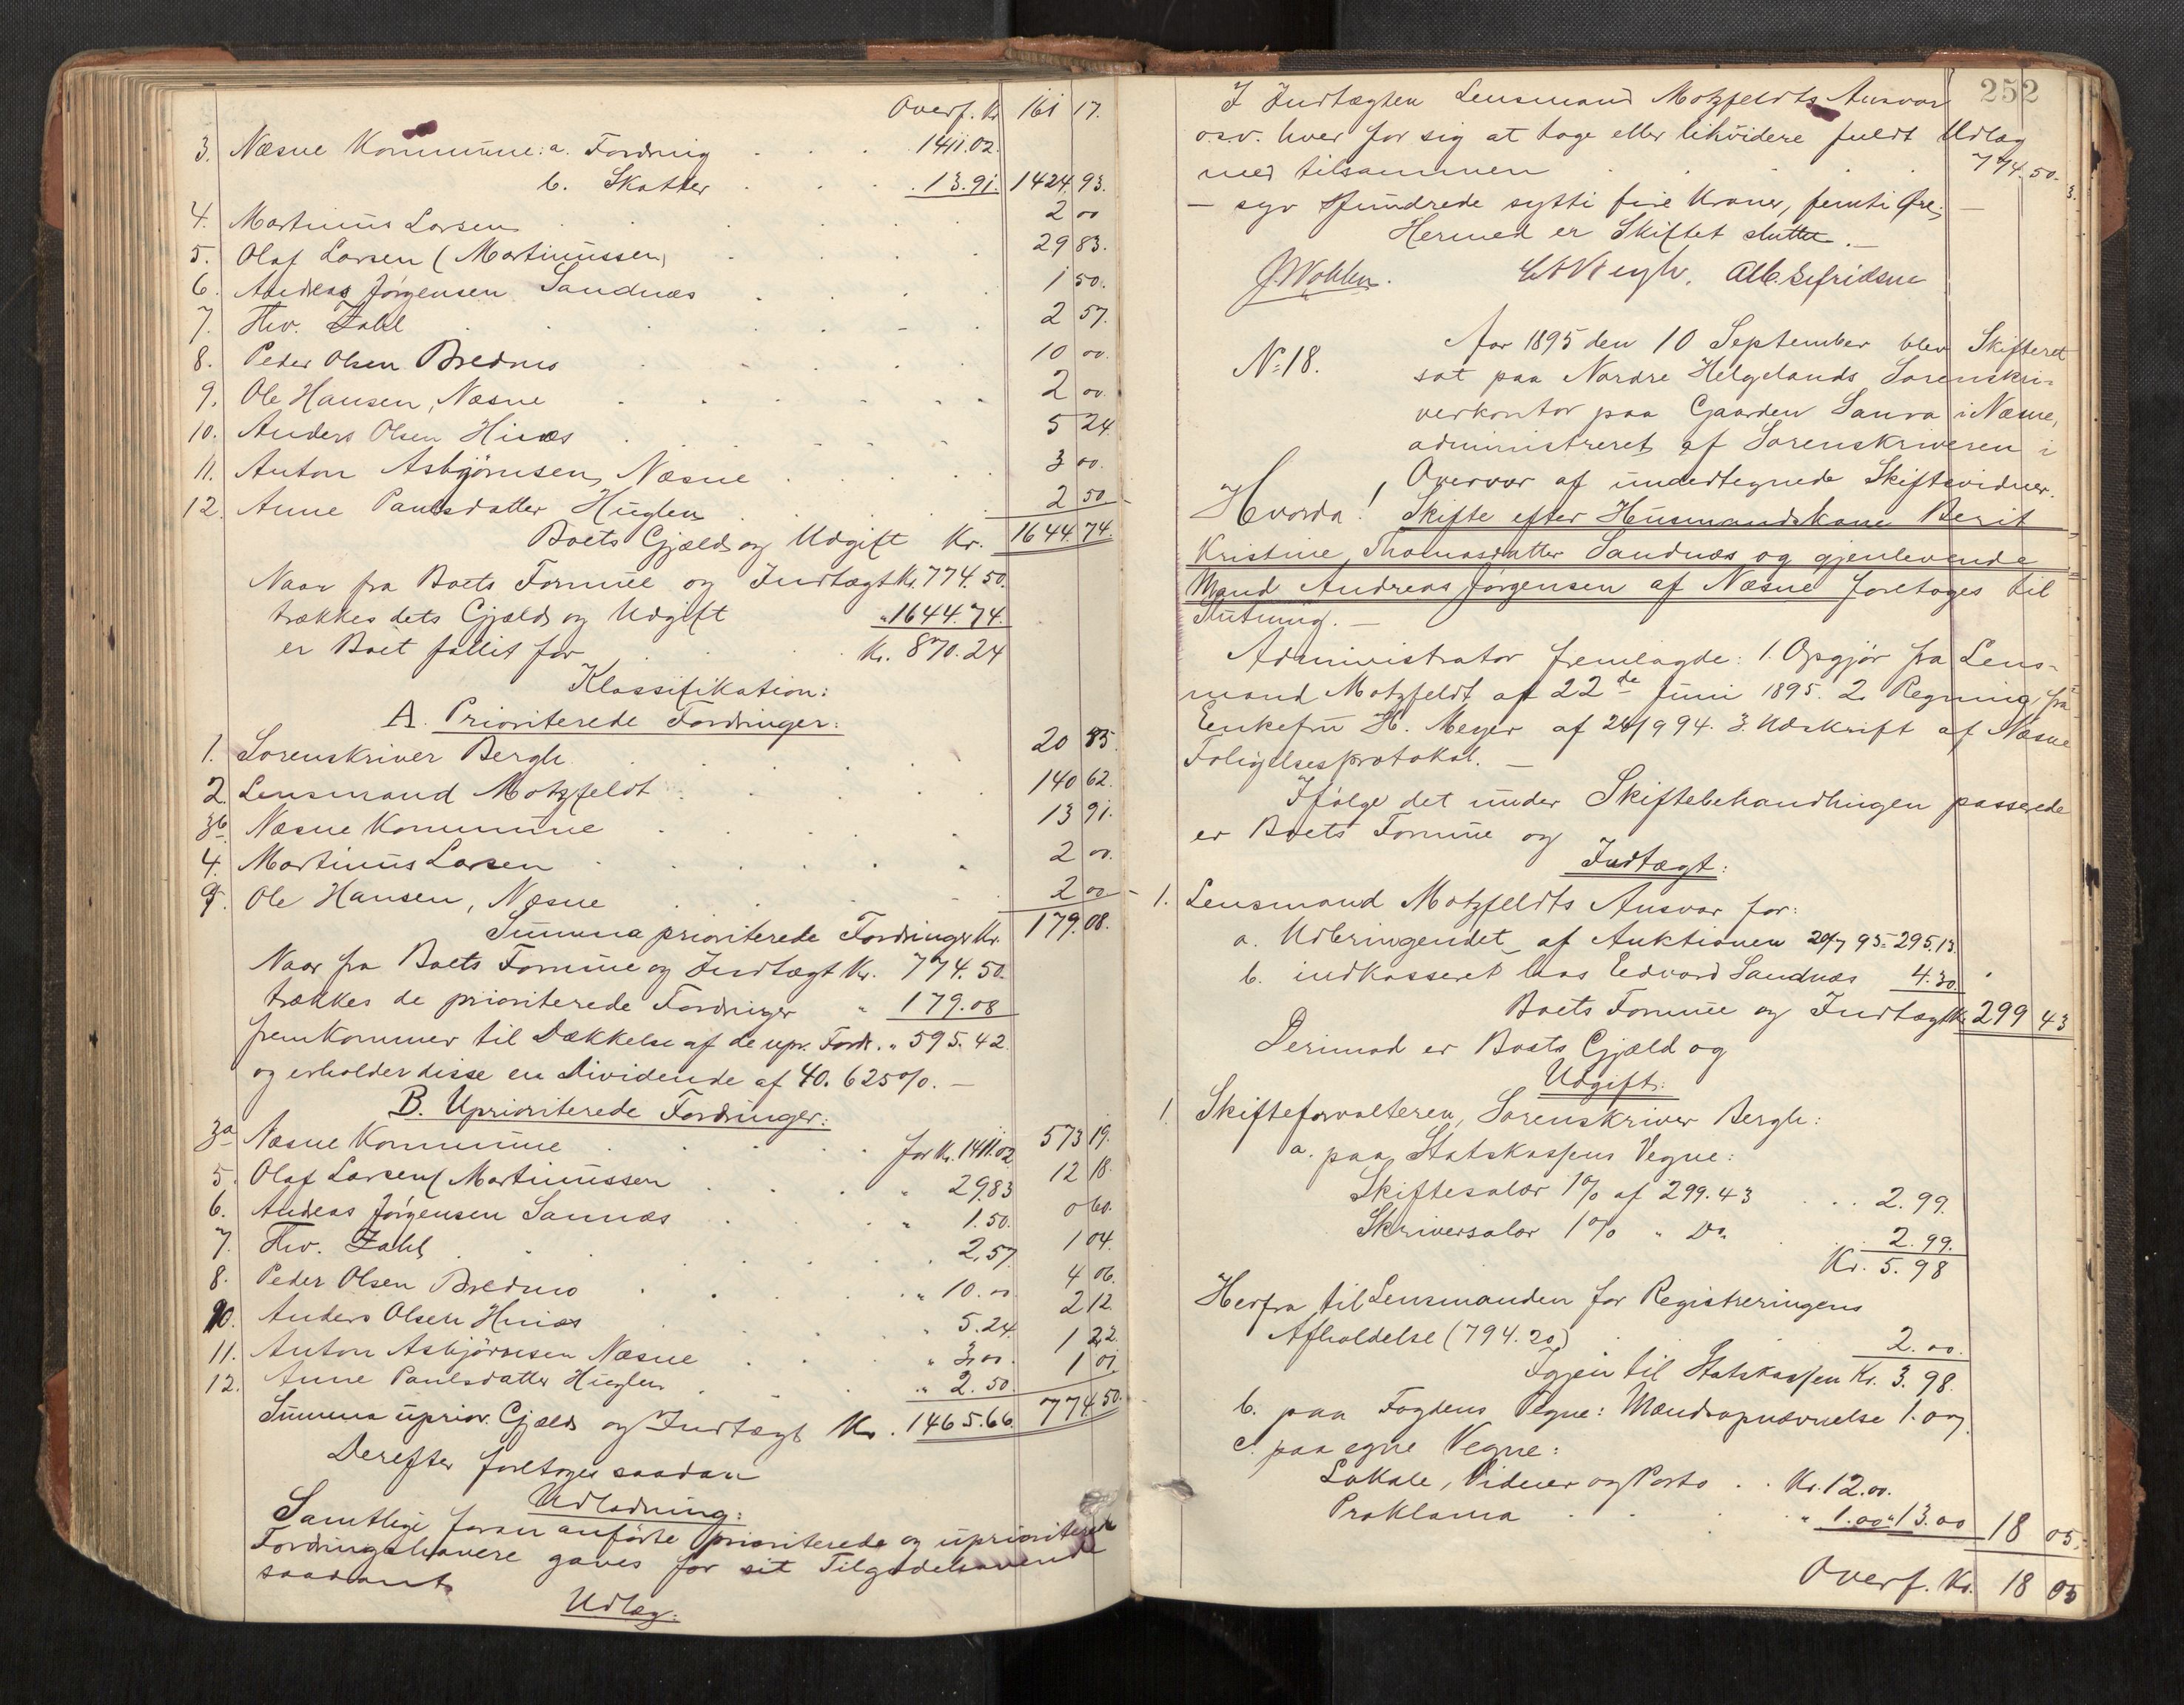 Overf. Kr. 161 17.
3. Næsne Kommune: a. Fordring . . . 1411.02.
b. Skatter . . . 13.91. 1424.93.
4. Martinus Larsen . . . 2 00
5. Olaf Larsen (Martinussen) . . . 29 83.
6. Andreas Jørgensen Sandnæs . . . 1 50.
7. Hv. Zahl . . . 2 57.
8. Peder Olsen Bredmo . . . 10 00.
9. Ole Hansen, Næsne . . . 2 00.
10. Anders Olsen Hinæs . . . 5 24.
11. Anton Asbjørnsen, Næsne . . . 3 00.
12. Anne Paulsdatter Huglen . . . 2 50
Boets Gjæld og Udgift Kr. 1644.74.
Naar fra Boets Formue og Indtægt Kr. 774.50.
trækkes dets Gjæld og Udgift „ 1644.74.
er Boet fallit for . . . Kr. 870.24
Klassifikation:
A. Prioriterede Fordringer:
1. Sorenskriver Bergh . . . 20 85.
2. Lensmand Motzfeldt . . . 140 62.
3b Næsne Kommune . . . 13 91.
4. Martinus Larsen . . . 2 00.
9. Ole Hansen, Næsne . . . 2 00
Summa prioriterede Fordringer Kr. 179.08.
Naar fra Boets Formue og Indtægt Kr. 774.50.
trækkes de prioriterede Fordringer „ 179.08
fremkommer til Dækkelse af de upr. Fordr. „ 595.42.
og erholder disse en Dividende af 40.625%. —
B. Uprioriterede Fordringer:
3a Næsne Kommune . . . for Kr. 1411.02 573 19.
5. Olaf Larsen (Martinussen . . . „ 29.83 12 18.
6. Andeas Jørgensen Sannæs . . . „ 1.50. 0 60.
7. Hv. Zahl . . . 2.57. 1 04.
8. Peder Olsen Bredmo . . . „ 10.00 4 06.
10. Anders Olsen Hinæs . . . „ 5.24. 2 12
11. Anton Asbjørnsen Næsne . . . „ 3.00. 1 22.
12. Anne Paulsdatter Huglen . . . „ 2.50. 1 01.
Summa uprior. Gjæld og Indtægt Kr. 1465.66. 774.50.
Derefter foretoges saadan
Udlodning:
Samtlige foran anførte prioriterede og uprioriterede
Fordringshavere gaves for sit Tilgodehavende
saadant
Udlæg:
252
I Indtægten Lensmand Motzfeldts Ansvar
o.s.v. hver for sig at tage eller likvidere fuldt Udlæg
med tilsammen . . . 774.50.
— syv Hundrede sytti fire Kroner, femti Øre; —
Hermed er Skiftet sluttet. —
J. Wohlen. Alb. Sefridsne
No 18. Aar 1895 den 10 September blev Skifteret
sat paa Nordre Helgelands Sorenskri-
verkontor paa Gaarden Sanra i Næsne,
administreret af Sorenskriveren i
Overvær af undertegnede Skiftevidner.
Hvorda! Skifte efter Husmandskone Berit
Kristine Thomasdatter Sandnæs og gjenlevende
Mand Andreas Jørgensen af Næsne foretoges til
Slutning. —
Administrator fremlagde: 1. Opgjør fra Lens-
mand Motzfeldt af 22de Juni 1895. 2. Regning fra
Enkefru H. Meyer af 24/9 94. 3. Udskrift af Næsne
Foligelsesprotokol. —
Ifølge det under Skiftebehandlingen passerede
er Boets Formue og
Indtægt:
1. Lensmand Motzfeldts Ansvar for:
a. Udbringendet af Auktionen 20/7 95 = 295.13.
b. indkasseret hos Edvard Sandnæs 4.30.
Boets Formue og Indtægt Kr. 299 43
Derimod er Boets Gjæld og
Udgift:
1. Skifteforvalteren, Sorenskriver Bergh:
a. paa Statskassens Vegne:
Skiftesalær 1% af 299.43 . . . 2.99.
Skriversalær 1% „ Do . . . 2.99.
Kr. 5.98
Herfra til Lensmanden for Registreringens
Afholdelse (794.20) . . . 2.00.
Igjen til Statskassen Kr. 3.98.
b. paa Fogdens Vegne: Mændsopnævnelse 1.07.
c. paa egne Vegne:
Lokale, Vidner og Porto . . Kr. 12.00.
Proklama . . . „ 1.00 „ 13.00 18 05.
Overf. Kr. 18 05